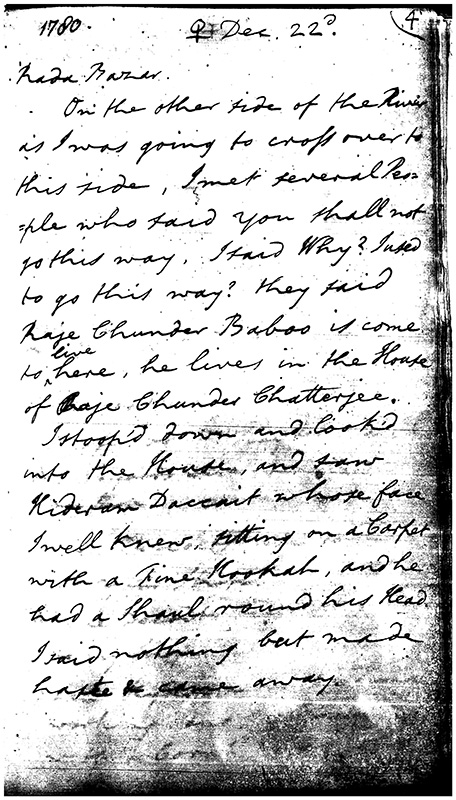 1780. ♀ Dec. 22d. 4
Rada Bazar.
On the other side of the River
as I was going to cross over to
this side, I met several Peo=
=ple who said you shall not
go this way. I said Why? I used
to go this way? they said
Raje Chunder Baboo is come
to live here, he lives in the House
of Raje Chunder Chatterjee.
I stoop'd down and look'd
into the House, and saw
Kideram Daccait whose face
I well knew, sitting on a Carpet
with a Fine Hookah, and he
had a Shaul round his Head
I said nothing but made
haste & came away.